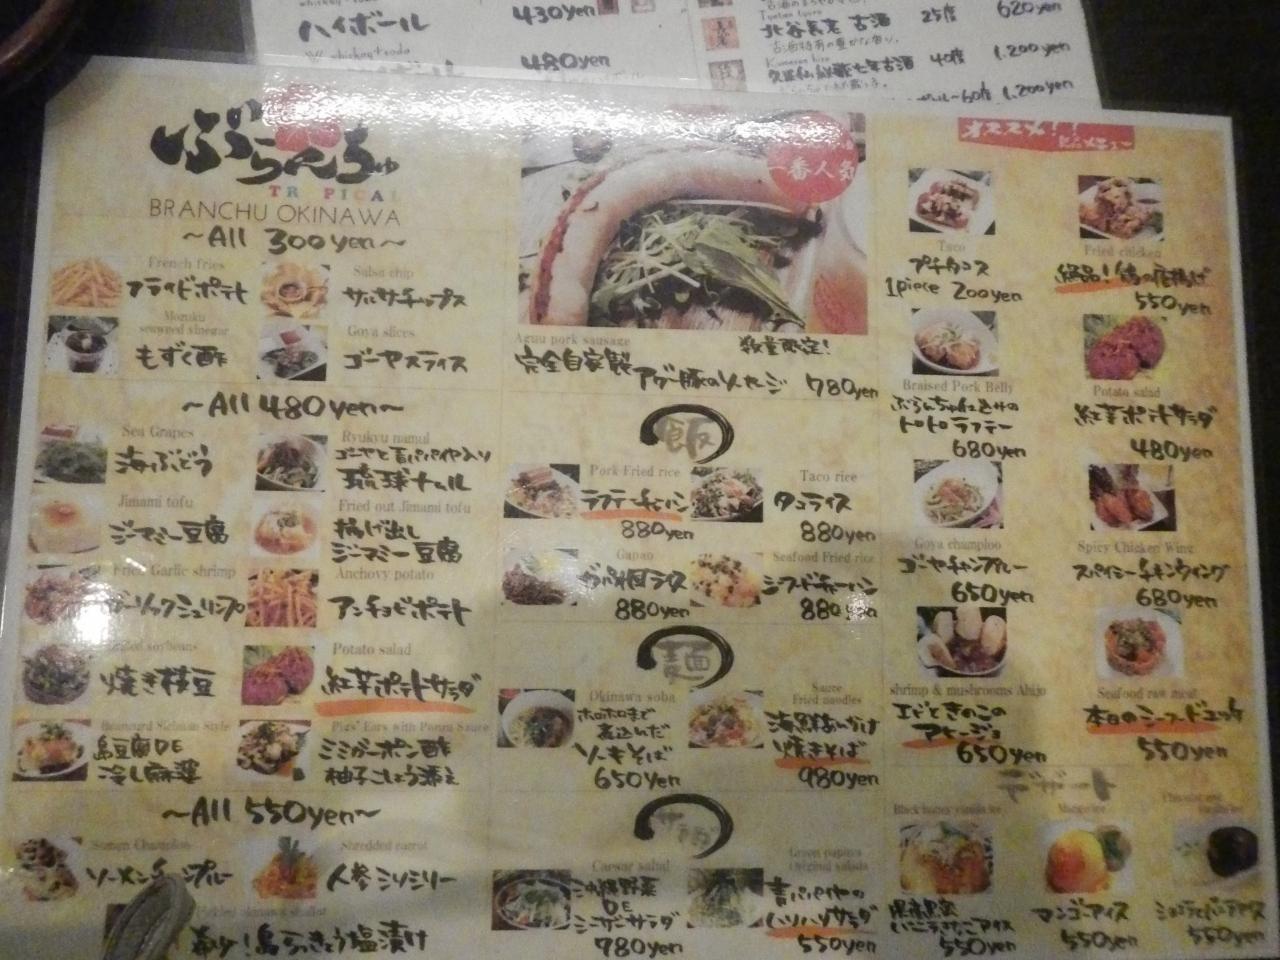 ハイボール
430yen
480yen
北谷長老 古酒 25度 620yen
40度 1,200yen
60度 1,200yen
ぶらんちゅ
TROPICAL
BRANCHU OKINAWA
~All 300yen~
French fries
フライドポテト
Salsa chip
サルサチップス
Mozuku
seaweed vinegar
もずく酢
Goya slices
ゴーヤスライス
~All 480yen~
Sea Grapes
海ぶどう
Ryukyu namul
ゴーヤと青パパイヤ入り
琉球ナムル
Jimami tofu
ジーマミー豆腐
Fried out Jimami tofu
揚げ出し
ジーマミー豆腐
Fried Garlic shrimp
ガーリックシュリンプ
Anchovy potato
アンチョビポテト
Grilled soybeans
焼き枝豆
Potato salad
紅芋ポテトサラダ
Beancurd Sichuan Style
島豆腐DE
冷し麻婆
Pigs' Ears with Ponzu Sauce
ミミガーポン酢
柚子こしょう添え
~All 550yen~
Somen Champloo
ソーメンチャンプルー
Shredded carrot
人参シリシリー
Pickled okinawa shallot
島らっきょう塩漬け
一番人気
Aguu pork sausage
数量限定!
完全自家製アグー豚のソーセージ 780yen
飯
Pork Fried rice
ラフテーチャーハン
880yen
Taco rice
タコライス
880yen
Gapao
ガパオ風ライス
880yen
Seafood Fried rice
シーフードチャーハン
880yen
麺
Okinawa soba
ホロホロまで
煮込んだ
ソーキそば
650yen
Sauce
Fried noodles
海鮮あんかけ
焼きそば
980yen
サラダ
Caesar salad
沖縄野菜
DE
シーザーサラダ
780yen
Green papaya
Original salada
青パパイヤの
ハリハリサラダ
550yen
オススメ!!
Taco
プチタコス
1piece 200yen
Fried chicken
絶品!鶏の唐揚げ
550yen
Braised Pork Belly
ぶらんちゅ仕込みの
トロトロラフテー
680yen
Potato salad
紅芋ポテトサラダ
480yen
Goya champloo
ゴーヤチャンプルー
650yen
Spicy Chicken Wing
スパイシーチキンウイング
680yen
shrimp & mushrooms Ahijo
エビときのこの
アヒージョ
650yen
Seafood raw meat
本日のシーフードユッケ
550yen
デザート
Black honey vanilla ice
550yen
Mango ice
マンゴーアイス
550yen
550yen